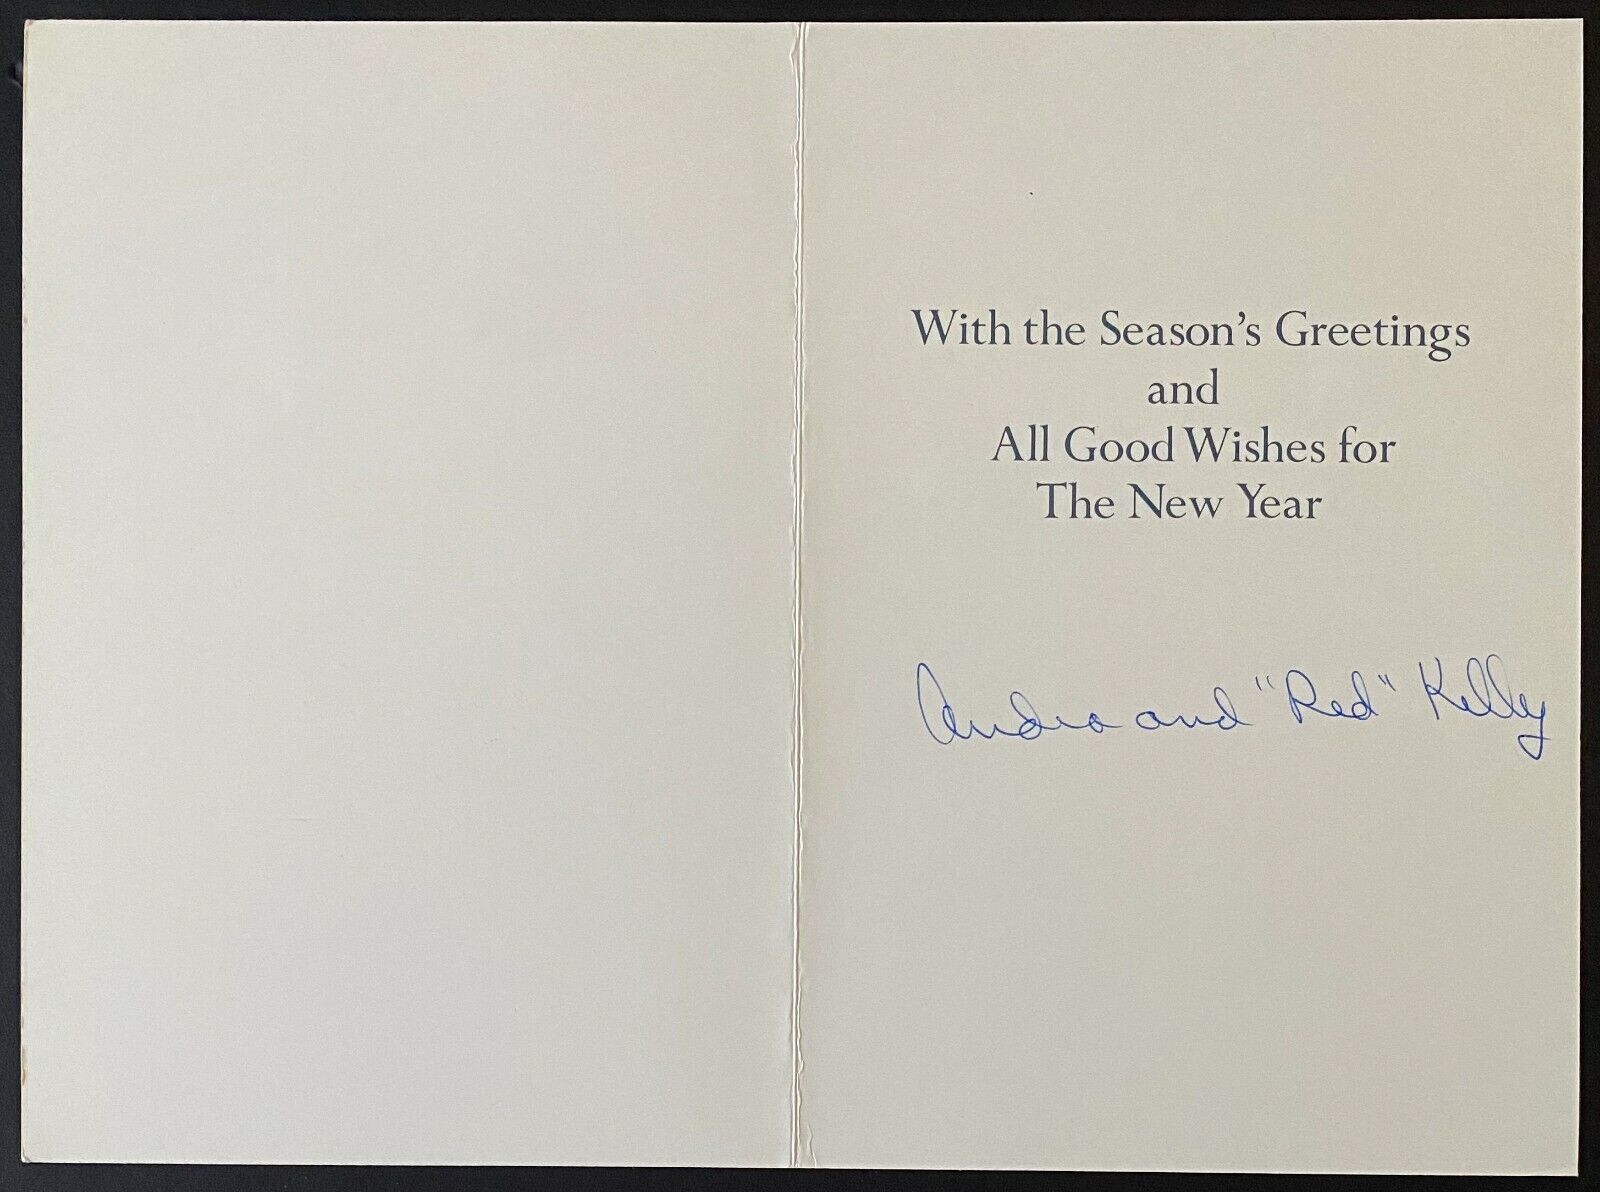 With the Season’s Greetings
and
All Good Wishes for
The New Year
Andra and "Red" Kelly